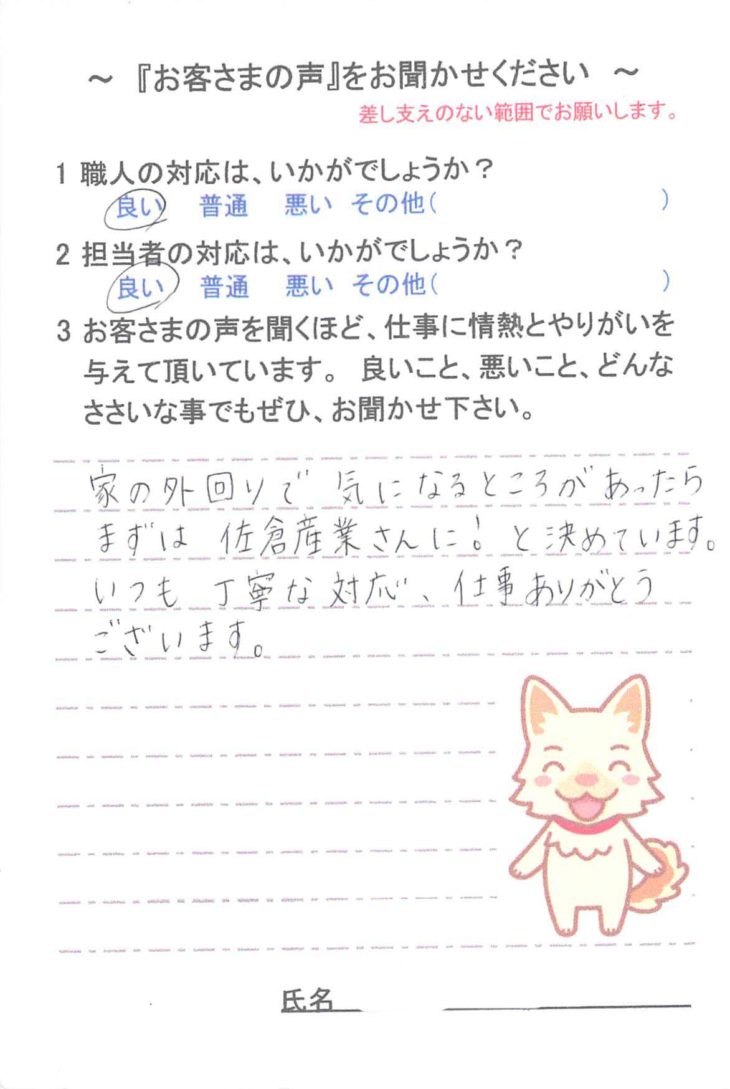 ～ 『お客さまの声』をお聞かせください ～
差し支えのない範囲でお願いします。
1 職人の対応は、いかがでしょうか？
良い 普通 悪い その他( )
2 担当者の対応は、いかがでしょうか？
良い 普通 悪い その他( )
3 お客さまの声を聞くほど、仕事に情熱とやりがいを
与えて頂いています。 良いこと、悪いこと、どんな
ささいな事でもぜひ、お聞かせ下さい。
家の外回りで 気になるところがあったら
まずは 佐倉産業さんに! と決めています。
いつも 丁寧な対応、仕事ありがとう
ございます。
氏名